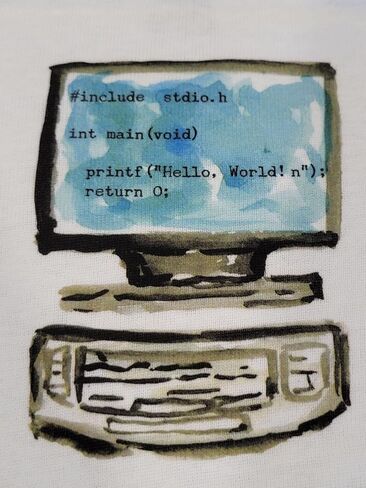 #include stdio.h
int main(void)
printf("Hello, World! n");
return 0;